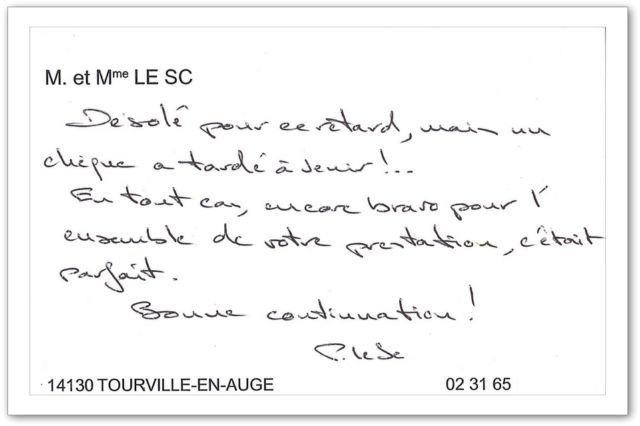 M. et Mme LE SC
Désolé pour ce retard, mais un
chèque a tardé à venir !...
En tout cas, encore bravo pour l'
ensemble de votre prestation, c'était
parfait.
Bonne continuation !
P. le Sc
14130 TOURVILLE-EN-AUGE 02 31 65